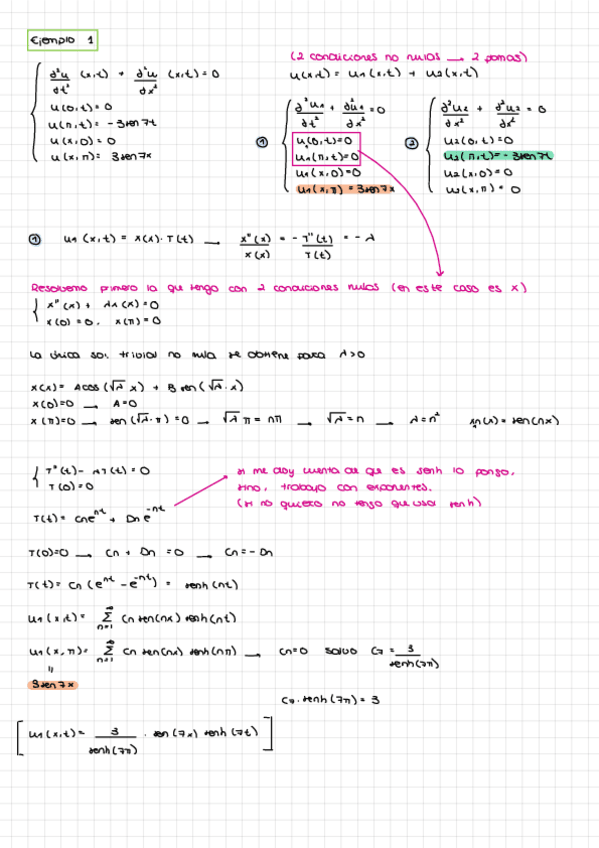 Ejemplo 1
(2 condiciones no nulas → 2 pomas)
∂²u/∂t² (x,t) + ∂²u/∂x² (x,t) = 0
u(0,t) = 0
u(π,t) = -3sen7t
u(x,0) = 0
u(x,π) = 3sen7x
u(x,t) = u1(x,t) + u2(x,t)
① ∂²u1/∂t² + ∂²u1/∂x² = 0
u1(0,t)=0
u1(π,t)=0
u1(x,0)=0
u1(x,π) = 3sen7x
② ∂²u2/∂x² + ∂²u2/∂x² = 0
u2(0,t) = 0
u2(π,t) = -3sen7t
u2(x,0) = 0
u2(x,π) = 0
① u1(x,t) = X(x)·T(t) → X''(x)/X(x) = -T''(t)/T(t) = -λ
Resolvemo primero la que tengo con 2 condiciones nulas (en este caso es x)
X''(x) + λX(x) = 0
X(0) = 0, X(π) = 0
La única sol. trivial no nula se obtiene para λ>0
X(x) = Acos(√λ x) + Bsen(√λ·x)
X(0)=0 → A=0
X(π)=0 → sen(√λ·π) = 0 → √λ π = nπ → √λ = n → λ = n² Xn(x) = sen(nx)
T''(t) - λT(t) = 0
T(0) = 0
si me doy cuenta de que es senh lo pongo,
sino, trabajo con exponentes.
(si no quiero no tengo que usar senh)
T(t) = Cne^nt + Dne^-nt
T(0)=0 → Cn + Dn = 0 → Cn = -Dn
T(t) = Cn(e^nt - e^-nt) = senh(nt)
u1(x,t) = ∑ n=1 ∞ Cn sen(nx) senh(nt)
u1(x,π) = ∑ n=1 ∞ Cn sen(nx) senh(nπ) → Cn=0 salvo C7 = 3/senh(7π)
=
3sen7x
C7·senh(7π) = 3
[u1(x,t) = 3/senh(7π) · sen(7x) senh(7t)]